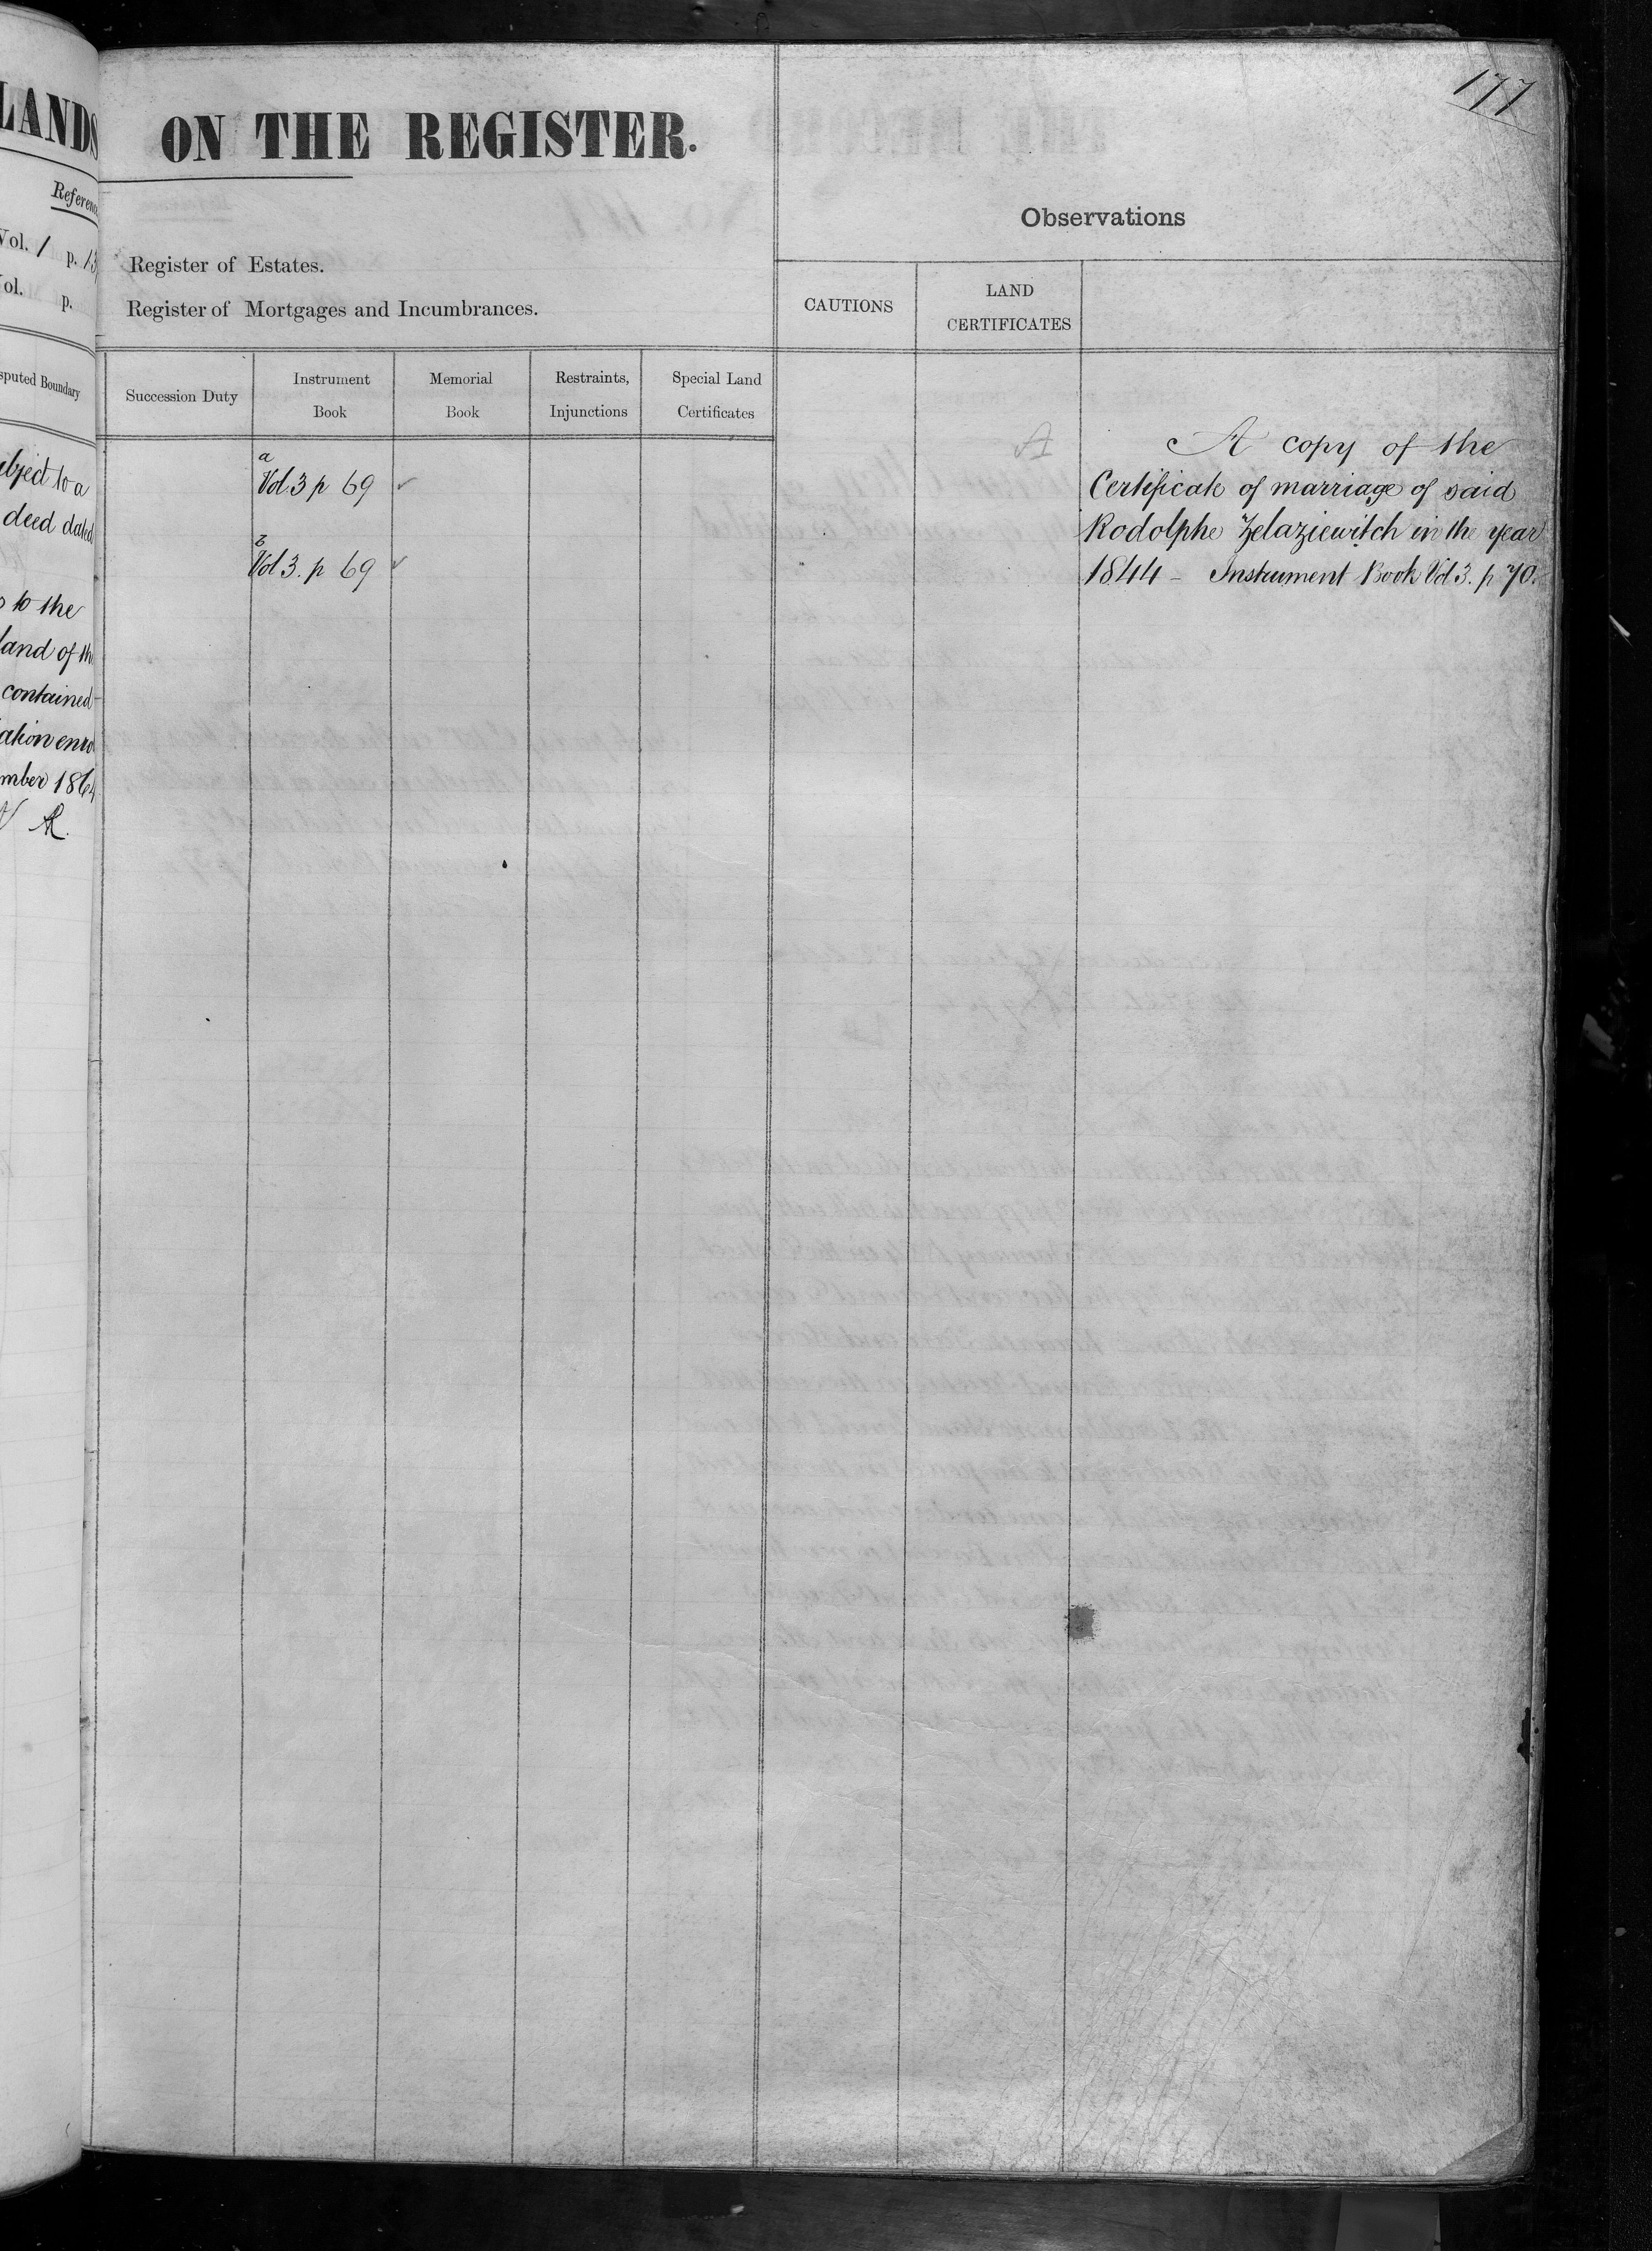 177
LANDS
ON THE REGISTER.
Reference
Vol. 1 p. 13
Vol. p.
Register of Estates.
Register of Mortgages and Incumbrances.
Observations
CAUTIONS
LAND
CERTIFICATES
sputed Boundary
Succession Duty
Instrument
Book
Memorial
Book
Restraints,
Injunctions
Special Land
Certificates
a
Vol 3 p 69 ✓
b
Vol 3. p 69 ✓
A
A copy of the
Certificate of marriage of said
Rodolphe Zelaziewitch in the year
1844 - Instrument Book Vol 3. p 70.
bject to a
deed dated
to the
land of th
contained
ation enro
mber 1864